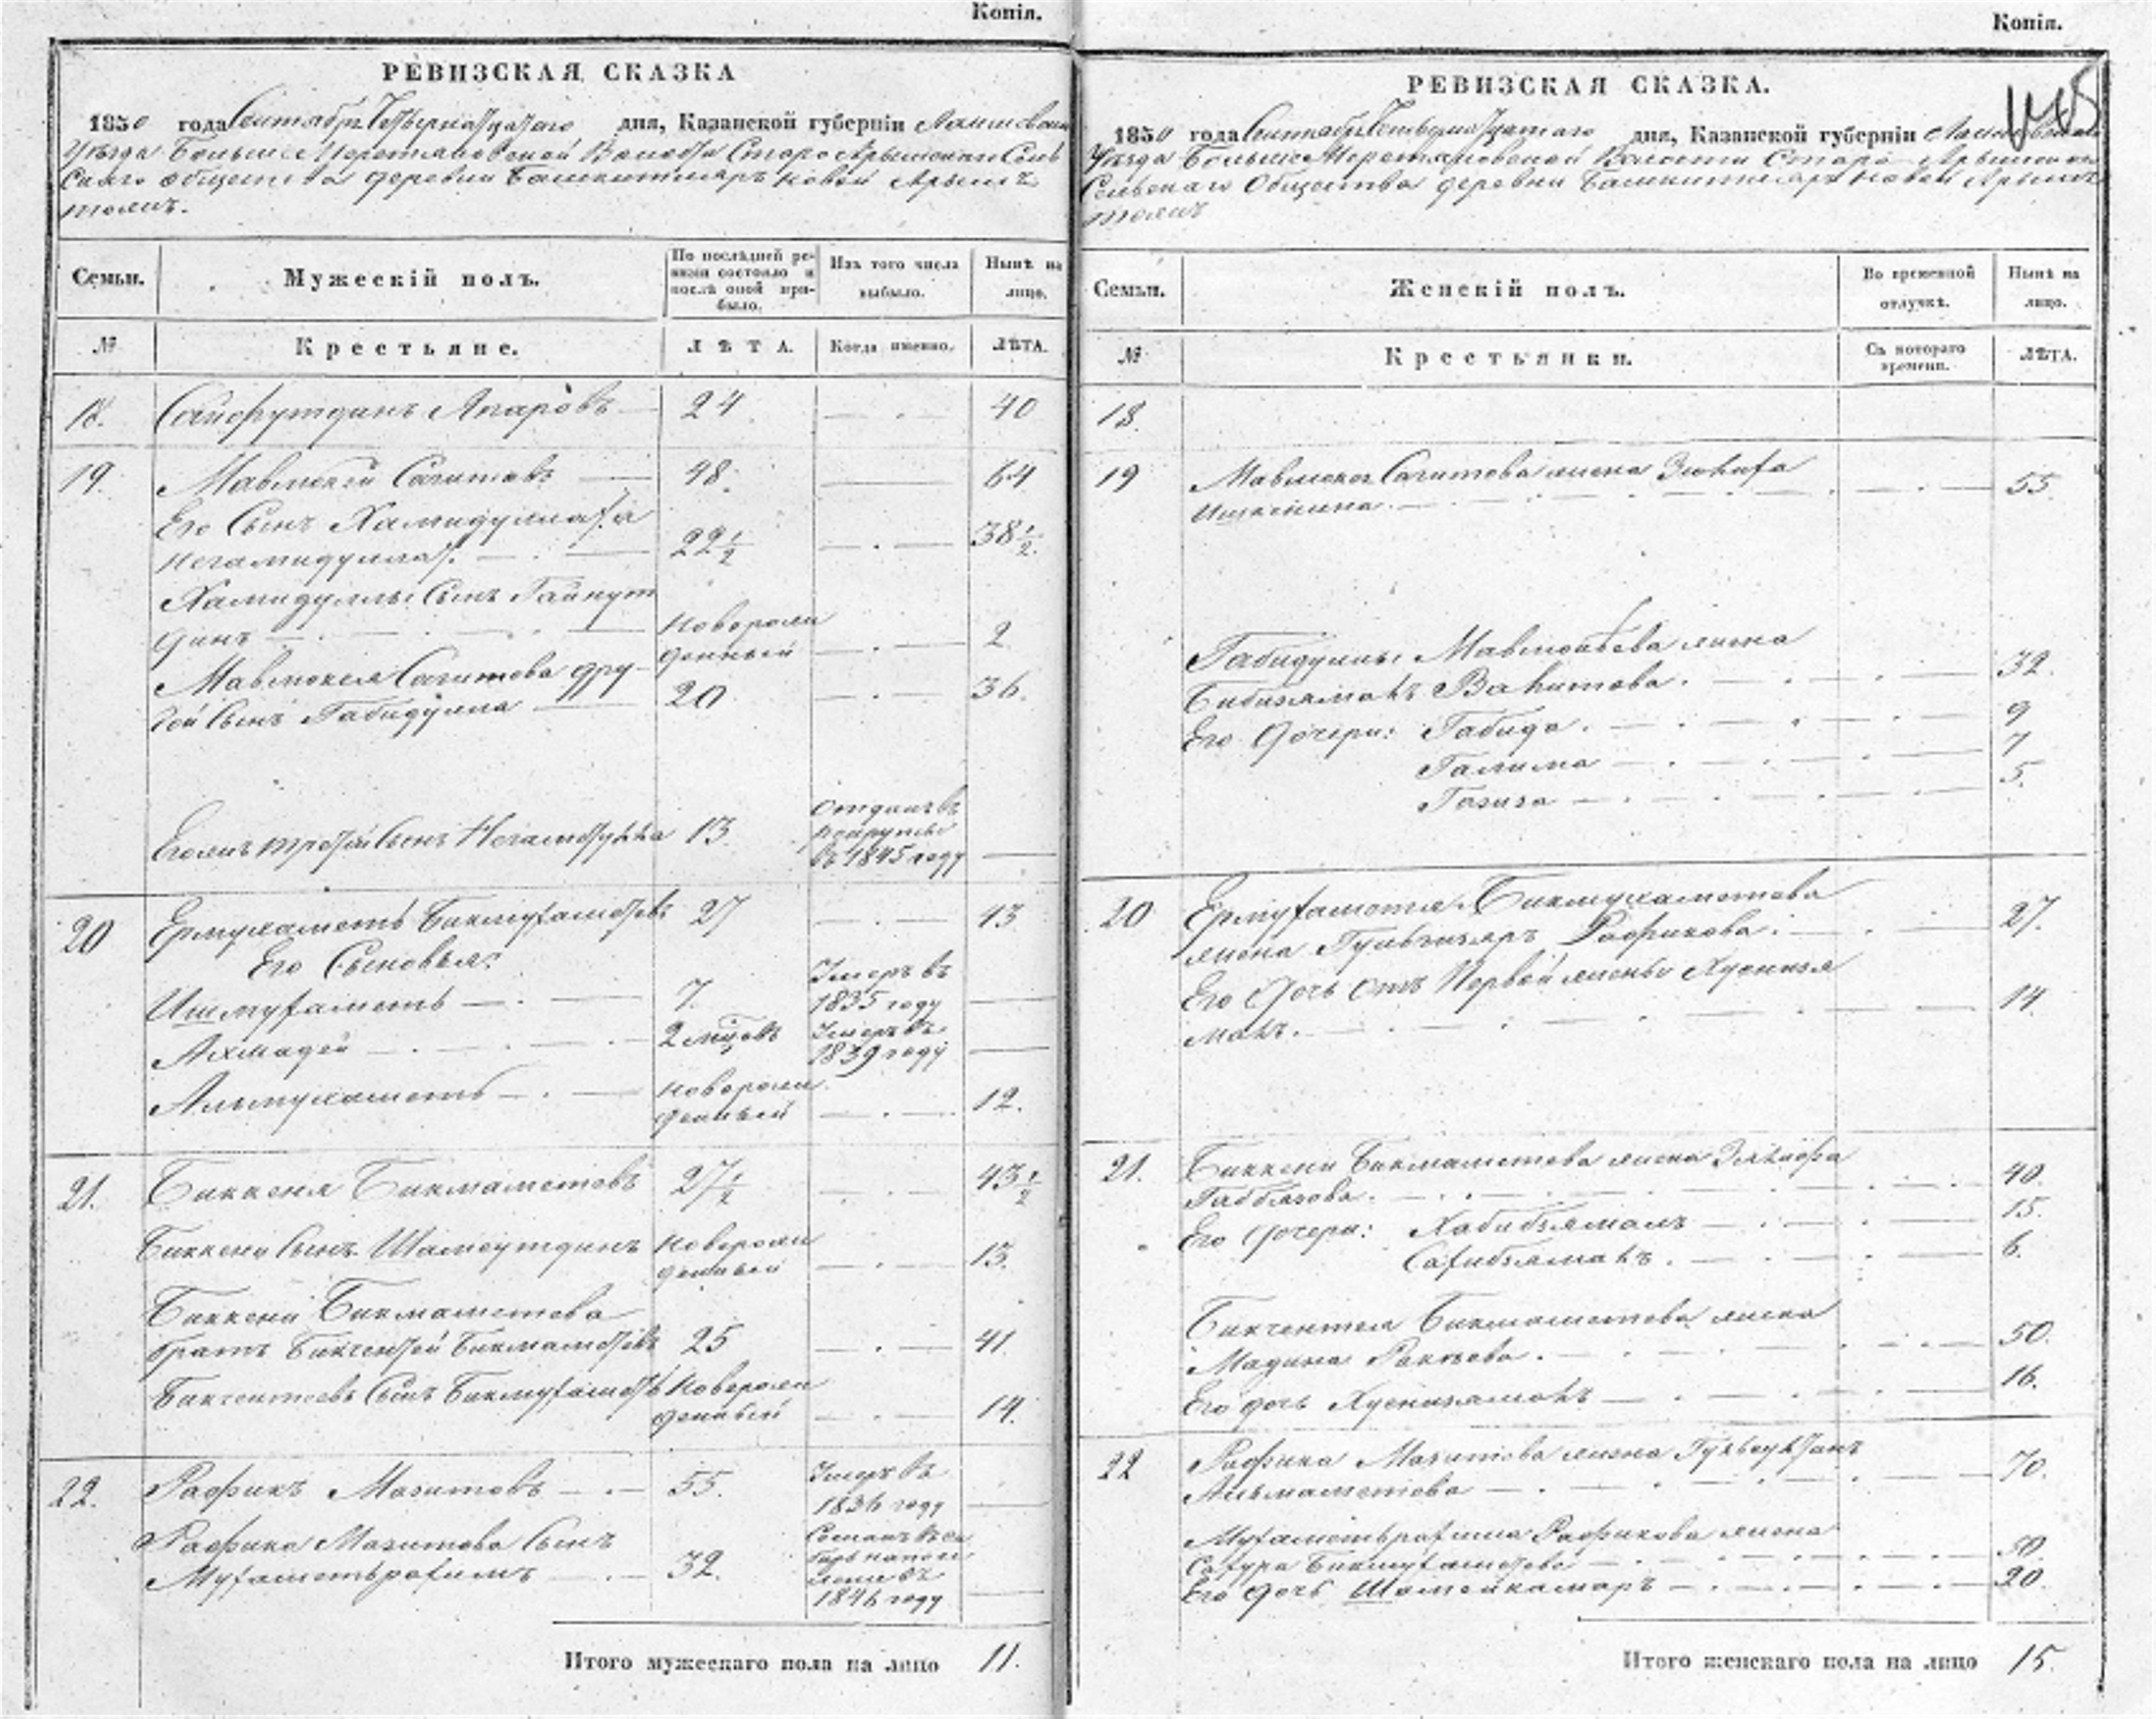 Копія.
РЕВИЗСКАЯ СКАЗКА
1850 года Сентябр Четвернадцатаго дня, Казанской губерніи Лаишевскаго
Уѣзда Больше Меретяковской Волости Старо Арышской Сель
скаго общества деревни Башкиттляръ новой Арышъ
тожъ.
Семьи. Мужескій полъ. По послѣдней ре-
визіи состояло и
послѣ оной при-
было. Изъ того числа
выбыло. Нынѣ на
лицо.
№ Крестьяне. ЛѢТА. Когда именно. ЛѢТА.
18. Сайфутдинъ Апаровъ 24 40
19. Мавлюкей Сагитовъ 48. 64
Его Сынъ Хамидулла
Негамидулла 22 1/2 38 1/2
Хамидуллы Сынъ Гайнут
динъ новорож
денный 2
Мавлюкея Сагитова дру-
гой Сынъ Габидулла 20 36.
третій Сынъ 13. Отданъ въ
рекруты
въ 1845 году
20 Ермухаметь Бикмухаметовъ 27 43
Его Сыновья:
Ишмухаметь 7. Умеръ въ
1835 году
Ахмадей 2 мцовъ Умеръ въ
1839 году
Альмухаметь новорож
денный 12.
21. Биккеня Бикмаметовъ 27 1/2 43 1/2
Биккени Сынъ Шамсутдинъ новорож
денный 13.
Биккени Бикмаметова
братъ Бикчентей Бикмаметовъ 25 41
Бикчентеевъ Сынъ Бикмухаметь новорож
денный 14.
22. Рафикъ Мазитовъ 55. Умеръ въ
1836 году
Рафика Мазитова Сынъ
Мухаметьрахимъ 32. Сосланъ въ Си
бирь на посе
ленье въ
1846 году
Итого мужескаго пола на лицо 11.
Копія.
РЕВИЗСКАЯ СКАЗКА.
1850 года Сентябр Четвернадцатаго дня, Казанской губерніи Лаишевской
Уѣзда Больше Меретяковской Волости Старо Арышской
Сельскаго Общества деревни Башкиттляръ Новой Арышъ
тожъ
Семьи. Женскій полъ. Во временной
отлучкѣ. Нынѣ на
лицо.
№ Крестьянки. Съ котораго
времени. ЛѢТА.
18.
19 Мавлюкея Сагитова жена
Ишкинина. 55.
Габидуллы Мавлюкеева жена
Бибизямалъ Вагитова. 32.
Его дочери: Габида. 9
Галима 7
Газиза 5.
20 Ермухаметя Бикмухаметова
жена Рафикова. 27.
Его Дочь отъ Первой жены Хуснизя
малъ. 14.
21. Биккени Бикмаметова жена
Габбязова. 40.
Его дочери: Хабибзямалъ 15.
Сахибзямалъ. 6.
Бикчентея Бикмаметова жена
Мадина Раисова. 50.
Его дочь Хуснизямалъ 16.
22 Рафика Мазитова жена
Альмаметова 70.
Мухаметьрахима Рафикова жена
Бикмухаметова 50.
Его дочь Шамсикамаръ 20.
Итого женскаго пола на лицо 15.